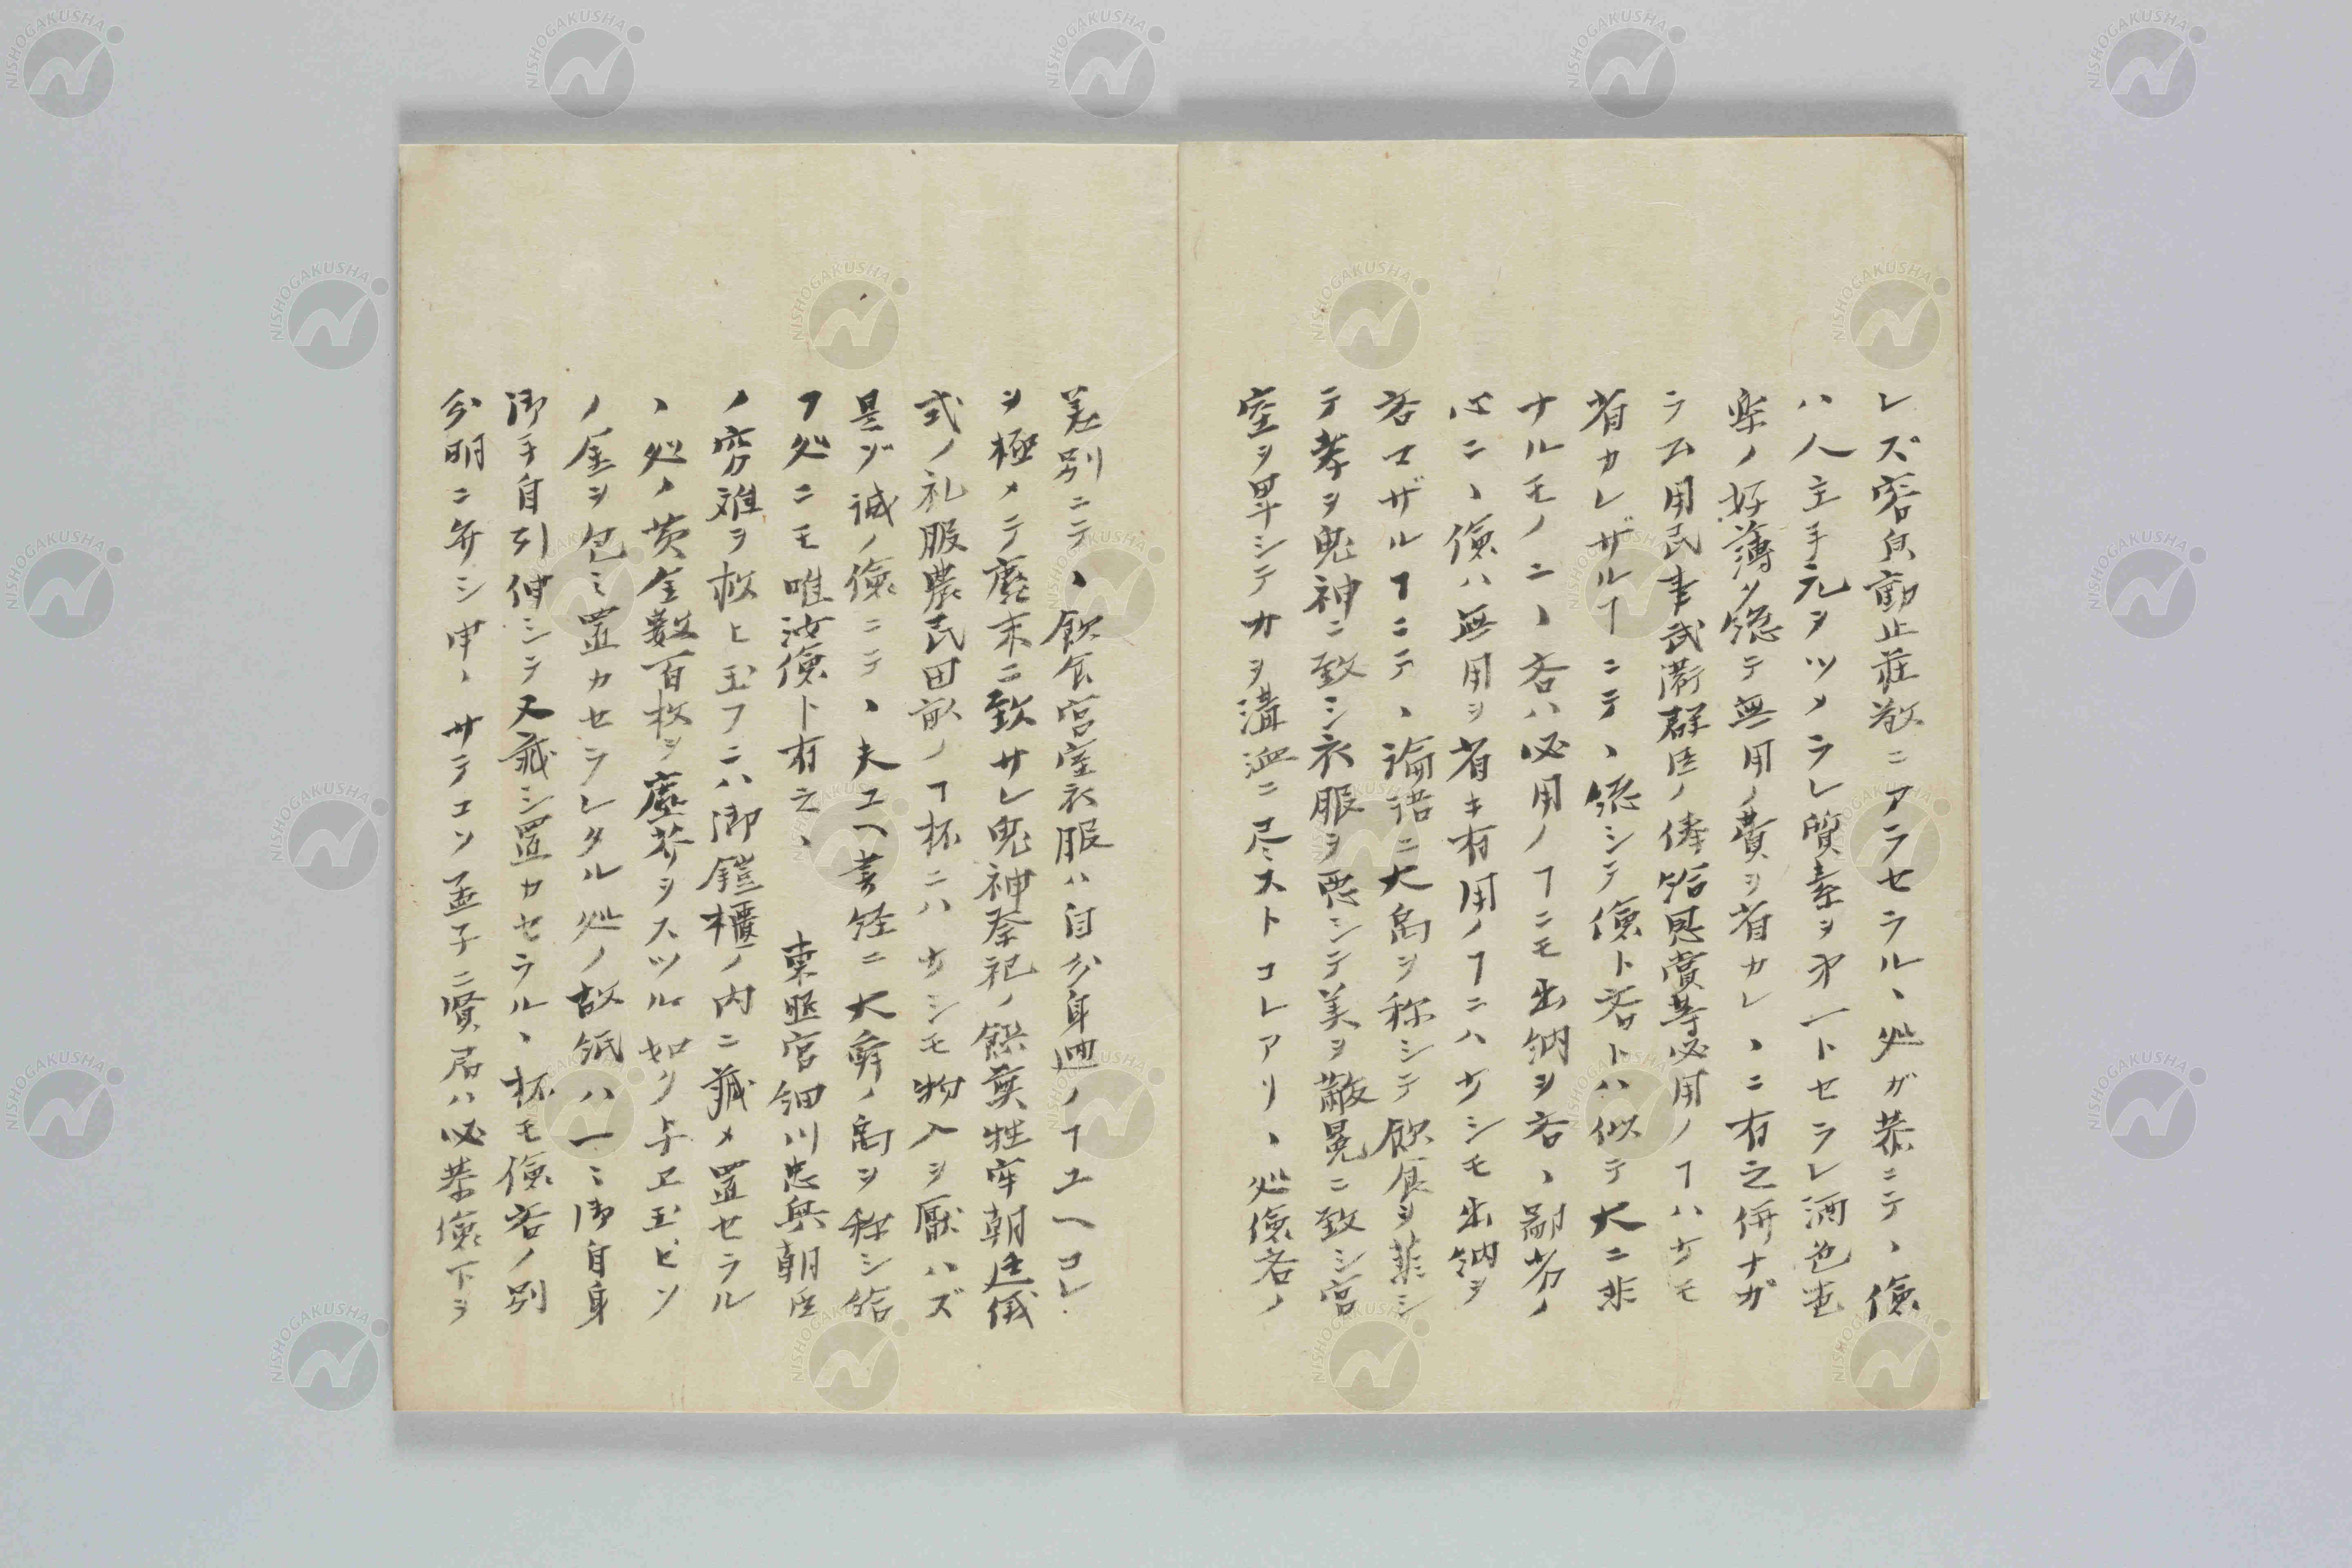 レズ容皃動止荘敬ニアラセラル、処ガ恭ニテ、倹
ハ人主手元ヲツメラレ質素ヲ㐧一トセラレ酒色
楽ノ好薄ク総テ無用ノ費ヲ省カレ、ニ有之併ナガ
ラ厶用民事武衛群臣ノ俸給恩賞等必用ノヿハ少モ
省カレザルヿニテ、総シテ倹ト吝トハ似テ大ニ非
ナルモノニ、吝ハ必用ノヿニモ出納ヲ吝、鄙劣ノ
心ニ、倹ハ無用ヲ省キ有用ノヿニハ少シモ出納ヲ
吝マザルヿニテ、論語ニ大禹ヲ称シテ飲食ヲ菲シ
テ孝ヲ鬼神ニ致シ衣服ヲ悪シテ美ヲ黻冕ニ致シ宮
室ヲ卑シテ力ヲ溝洫ニ尽ストコレアリ、処倹吝ノ
差別ニテ、飲食宮室衣服ハ自分身廻ノヿユヘコレ
ヲ極メテ麁末ニ致サレ鬼神祭祀ノ饌羹牲牢朝廷儀
式ノ礼服農民田畝ノヿ杯ニハ少シモ物入ヲ厭ハズ
是ガ誠ノ倹ニテ、夫ユヘ書経ニ大舜ノ禹ヲ称シ給
フ処ニモ唯汝倹ト有之、 東照宮細川忠興朝臣
ノ窮難ヲ救ヒ玉フニハ御鎧櫃ノ内ニ蔵メ置セラル
、処ノ黄金数百枚ヲ塵芥ヲスツル如リ与ヱ玉ヒソ
ノ金ヲ包ミ置カセラレタル処ノ故紙ハ一ミ御自身
御手自引伸シテ又蔵シ置カセラル、杯モ倹吝ノ別
分明ニ弁シ申、サテコソ孟子ニ賢君ハ必恭倹下ヲ